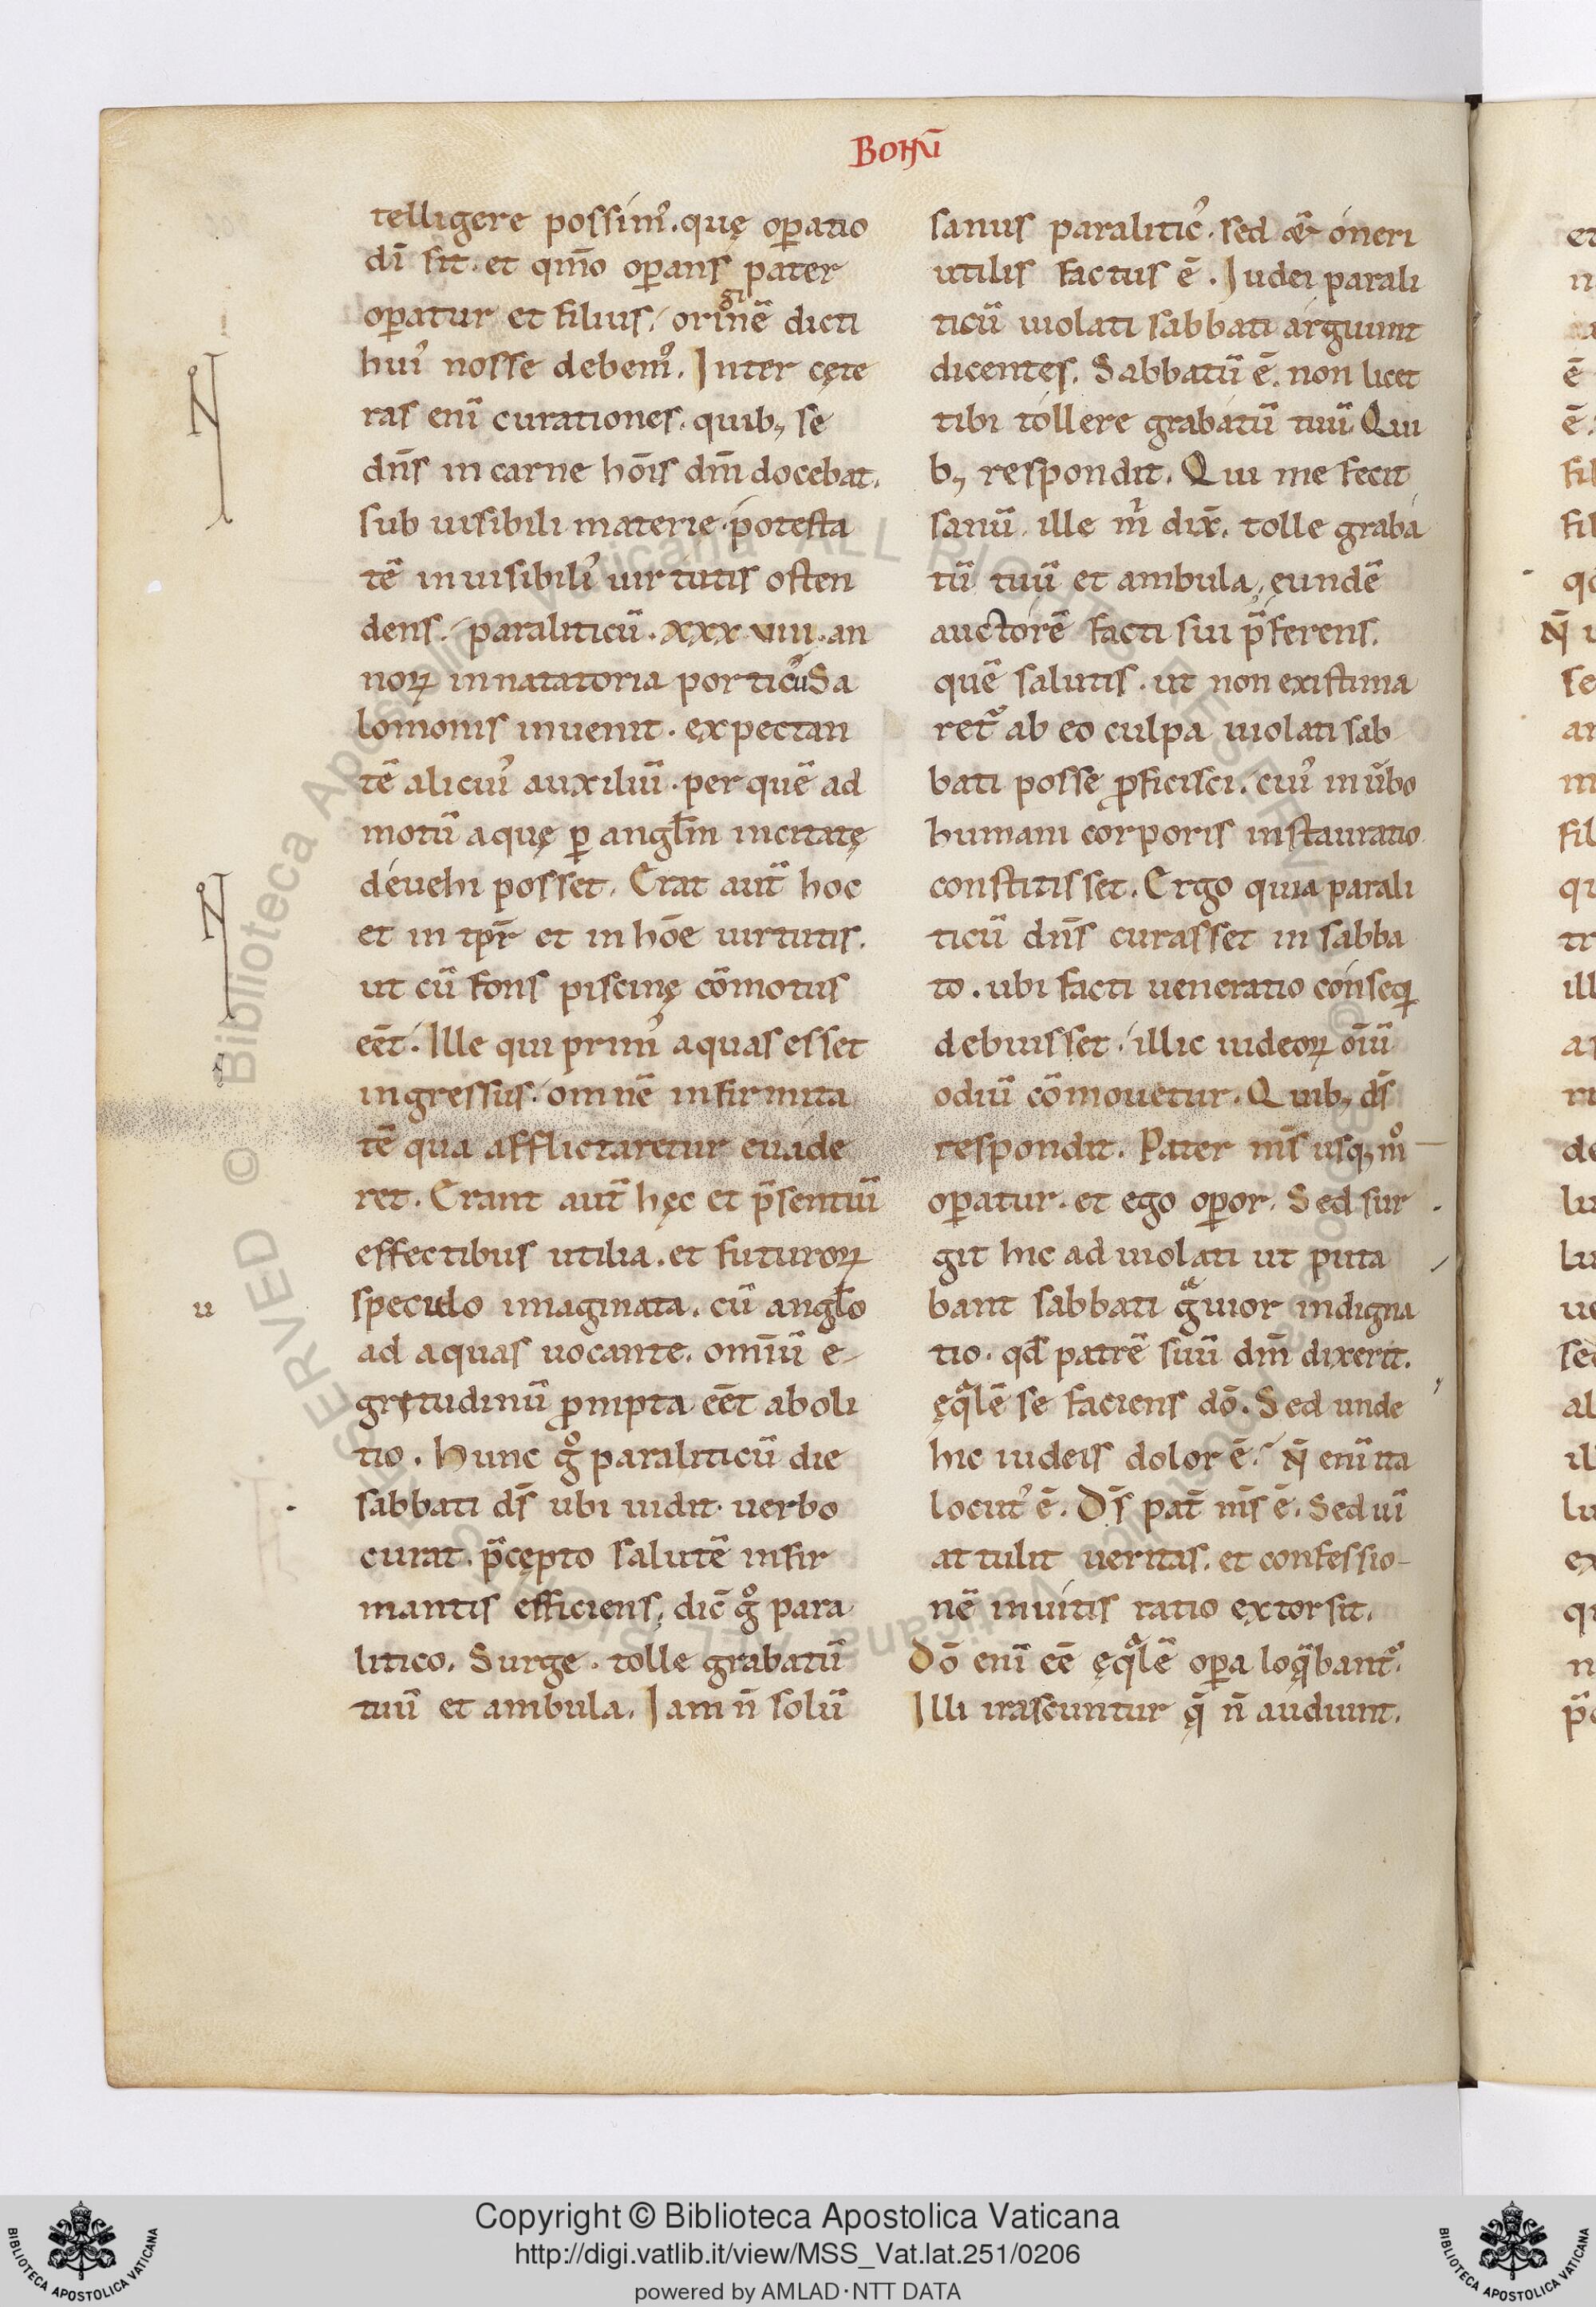 Bonū
telligere possim᾽. quę oꝑatio
dī sit. et qm̄o oꝑans pater
oꝑatur et filius. orinē dicti
gi
hui᾽ nosse debem᾽. Inter cęte
ras enī curationes. quib; se
dn̄s in carne hōis dm̄ docebat.
sub uisibili materie potesta
tē inuisibili᾽ uirtutis osten
dens. paraliticū. xxx viii. an
noꝝ in natatoria portic᾽u Sa
lomonis inuenit. expectan
tē alicui᾽ auxiliū. per quē ad
motū aquę ꝑ angl̄m incitatę
deuehi posset. Erat aut̄ hoc
et in tpr̄ et in hōe uirtutis.
ut cū fons piscinę cōmotus
eēt. Ille qui prim᾽ aquas esset
ingressus. omnē infirmita
tē qua afflictaretur euade
ret. Erant aut̄ hęc et p̄sentiū
effectibus utilia. et futuroꝝ
u
speculo imaginata. cū angl̄o
ad aquas uocante. omīū e-
gritudinū ꝓmpta eēt aboli
tio. Hunc gͦ paraliticū die
sabbati ds̄ ubi uidit. uerbo
curat. p̄cępto salutē infir
mantis efficiens. dic̄ gͦ para
litico. Surge. tolle grabatū
tuū et ambula. Iam n̄ solū
sanus paralitic᾽. sed & oneri
utilis factus ē. Iudei parali
ticū uiolati sabbati arguunt
dicentes. Sabbatū ē. non licet
tibi tollere grabatū tuū. Qui
b; respondit. Qui me fecit
sanū. ille m̄ dix̄. tolle graba
tū tuū et ambula, eundē
auctorē facti sui p̄ferens.
quē salutis. ut non existima
ret᾽ ab eo culpa uiolati sab
bati posse ꝓficisci. cui᾽ in ūbo
humani corporis instauratio
constitisset. Ergo quia parali
ticū dn̄s curasset in sabba
to. ubi facti ueneratio conseq̄
debuisset. illic iudeoꝝ oīū
odiū cōmouetur. Quib; ds̄
respondit. Pater ms̄ usq; mͦ
oꝑatur. et ego oꝑor. Sed sur
git hic ad uiolati ut puta
bant sabbati gͣuior indigna
tio. qd̄ patrē suū dm̄ dixerit.
ęqͣlē se faciens dō. Sed unde
hic iudeis dolor ē. N̄ enī ita
locut᾽ ē. Ds̄ pat̄ ms̄ ē. Sed uī
attulit ueritas. et confessio-
nē inuitis ratio extorsit.
Dō enī eē ęqͣlē oꝑa loqͣbant᾽.
Illi irascuntur q̄ n̄ audiunt.
Copyright © Biblioteca Apostolica Vaticana
http://digi.vatlib.it/view/MSS_Vat.lat.251/0206
powered by AMLAD·NTT DATA
BIBLIOTECA APOSTOLICA VATICANA
BIBLIOTECA APOSTOLICA VATICANA